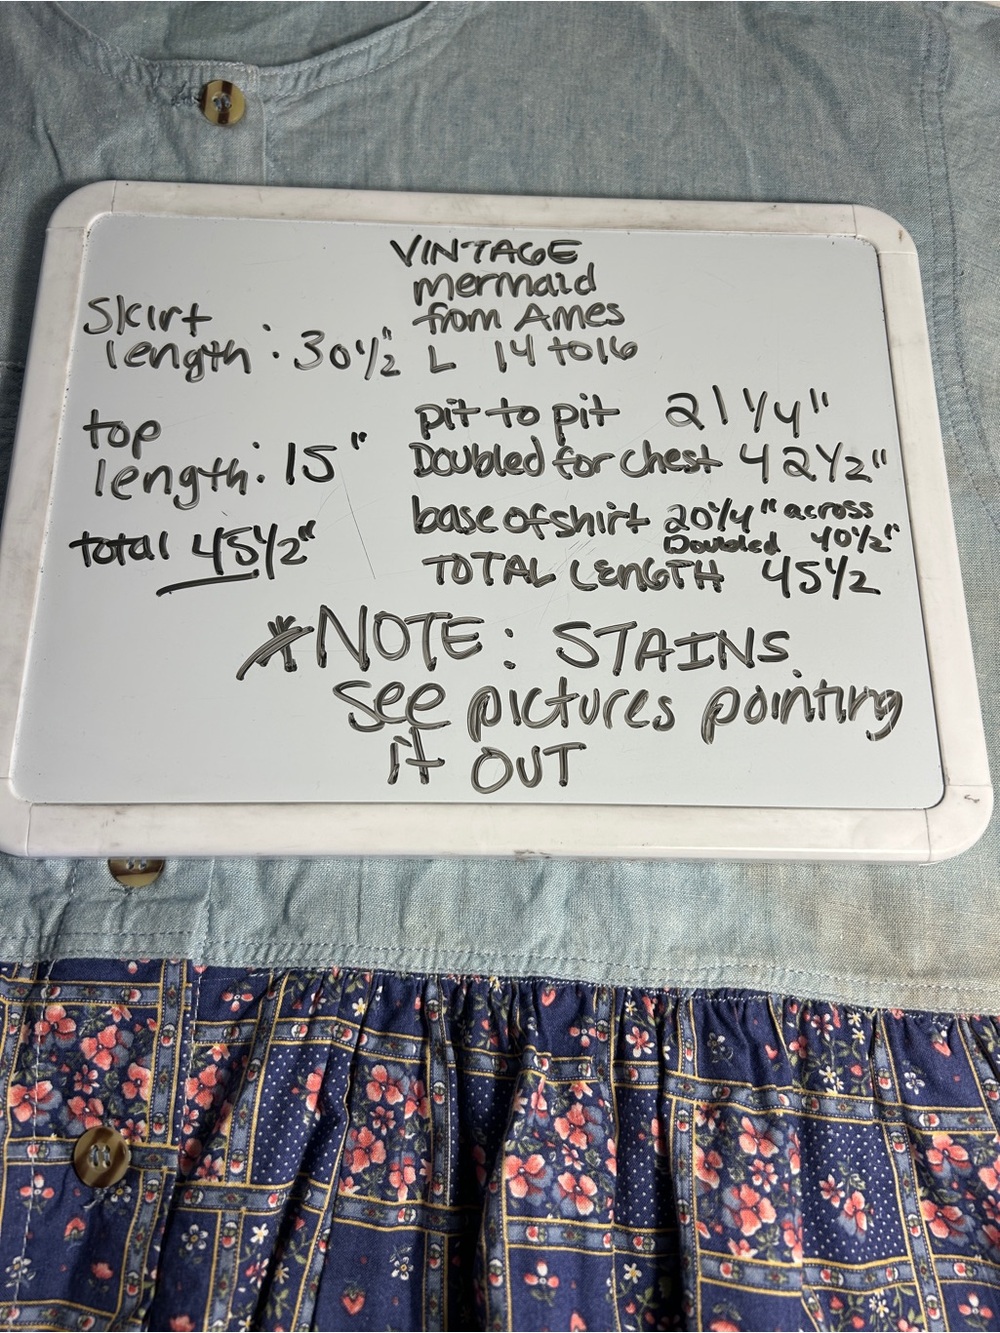 VINTAGE
mermaid
from Ames
L 14 to 16
Skirt
length: 30 1/2"
top
length: 15"
total 45 1/2"
pit to pit 21 1/4"
Doubled for chest 42 1/2"
base of shirt 20 1/4" across
Doubled 40 1/2"
TOTAL LENGTH 45 1/2
*NOTE: STAINS.
see pictures pointing
it OUT